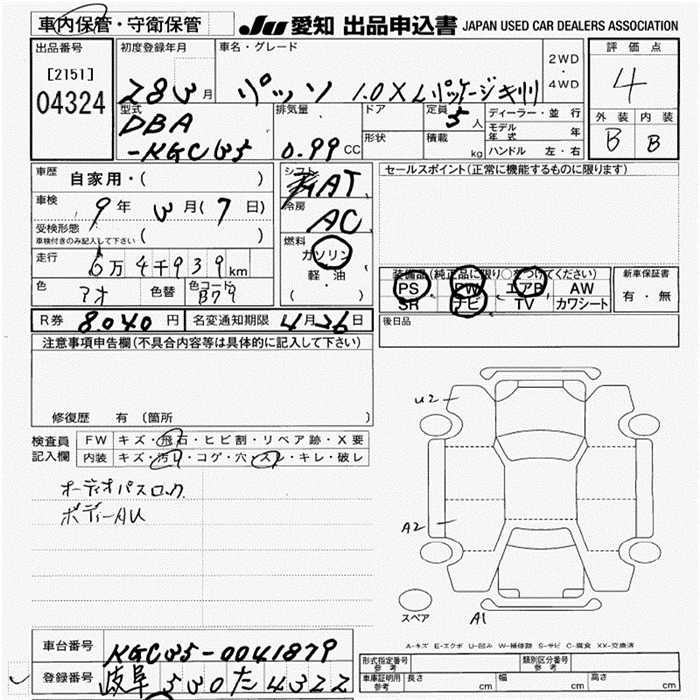 車内保管・守衛保管 JU 愛知 出品申込書 JAPAN USED CAR DEALERS ASSOCIATION
出品番号 初度登録年月 車名・グレード 2WD・4WD 評価点
[2151] 04324 28 3月 パッソ 1.0 X Lパッケージ 4
型式 排気量 ドア 定員 5人 ディーラー・並行 外装 内装
DBA-KGC35 0.99CC 形状 積載 kg モデル年式 年 B B
ハンドル 左・右
車歴 自家用・( ) シフト AT セールスポイント(正常に機能するものに限ります)
車検 9年 3月(7日) 冷房 AC
受検形態 車検付きのみ記入して下さい ( )
燃料 ガソリン 軽・油 ( )
走行 6万4千939km
色 アオ 色替 色コード B79
装備品(純正品に限り○をつけてください) 新車保証書
PS PW エアB AW 有・無
SR ナビ TV カワシート
R券 8040円 名変通知期限 4月26日 後日品
注意事項申告欄(不具合内容等は具体的に記入して下さい)
修復歴 有 (箇所
検査員記入欄 FW キズ・飛石・ヒビ割・リペア跡・X要
内装 キズ・汚れ・コゲ・穴・スレ・キレ・破レ
オーディオパスロック
ボディーAU
U2
A2
スペア A1
A-キズ E-エクボ U-凹み W-補修跡 S-サビ C-腐食 XX-交換済
車台番号 KGC35-0041879
登録番号 岐阜 530 た 4322
形式指定番号 参考 類別区分番号 参考
車庫証明用 参考 長さ cm 幅 cm 高さ cm